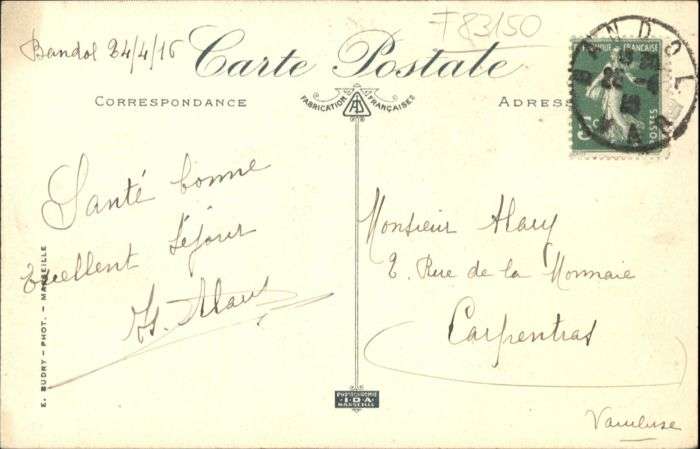 Bandol 24/4/16
F83150
Carte Postale
CORRESPONDANCE
FABRICATION FRANÇAISES
ADRESS
RÉPUBLIQUE FRANÇAISE
POSTES
BANDOL
VAR
Santé bonne
Excellent Séjour
Monsieur
2. Rue de la Monnaie
Carpentras
Vaucluse
E. BUDRY - PHOT. - MARSEILLE
PHOTOCHROMIE
I.D.A
MARSEILLE